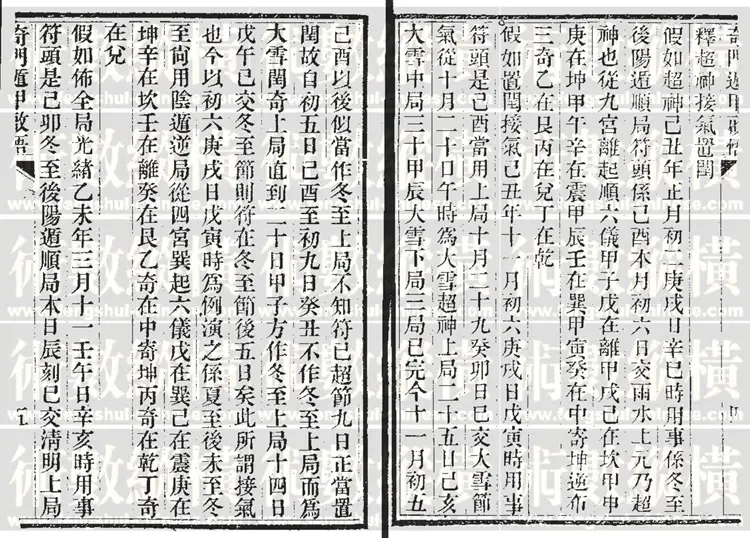 釋超神接氣置閏
假如超神己丑年正月初二庚戌日辛巳時用事係冬至
後陽遁順局符頭係己酉本月初六日交雨水上元乃超
神也從九宮離起順六儀甲子戊在離甲戌己在坎甲申
庚在坤甲午辛在震甲辰壬在巽甲寅癸在中寄坤逆布
三奇乙在艮丙在兌丁在乾
假如置閏接氣己丑年十一月初六庚戌日戊寅時用事
符頭是己酉當用上局十月二十九癸卯日已交大雪節
氣從十月二十日午時為大雪超神上局二十五日己亥
大雪中局三十甲辰大雪下局三局已完今十一月初五
己酉以後似當作冬至上局不知符已超節九日正當置
閏故自初五日己酉至初九日癸丑不作冬至上局而為
大雪閏奇上局直到二十日甲子方作冬至上局十四日
戊午已交冬至節則符在冬至節後五日矣此所謂接氣
也今以初六庚戌日戊寅時為例演之係夏至後未至冬
至尚用陰遁逆局從四宮巽起六儀戊在巽己在震庚在
坤辛在坎壬在離癸在艮乙奇在中寄坤丙奇在乾丁奇
在兌
假如佈全局光緒乙未年三月十一壬午日辛亥時用事
符頭是己卯冬至後陽遁順局本日辰刻已交清明上局
奇門遁甲啟悟
五